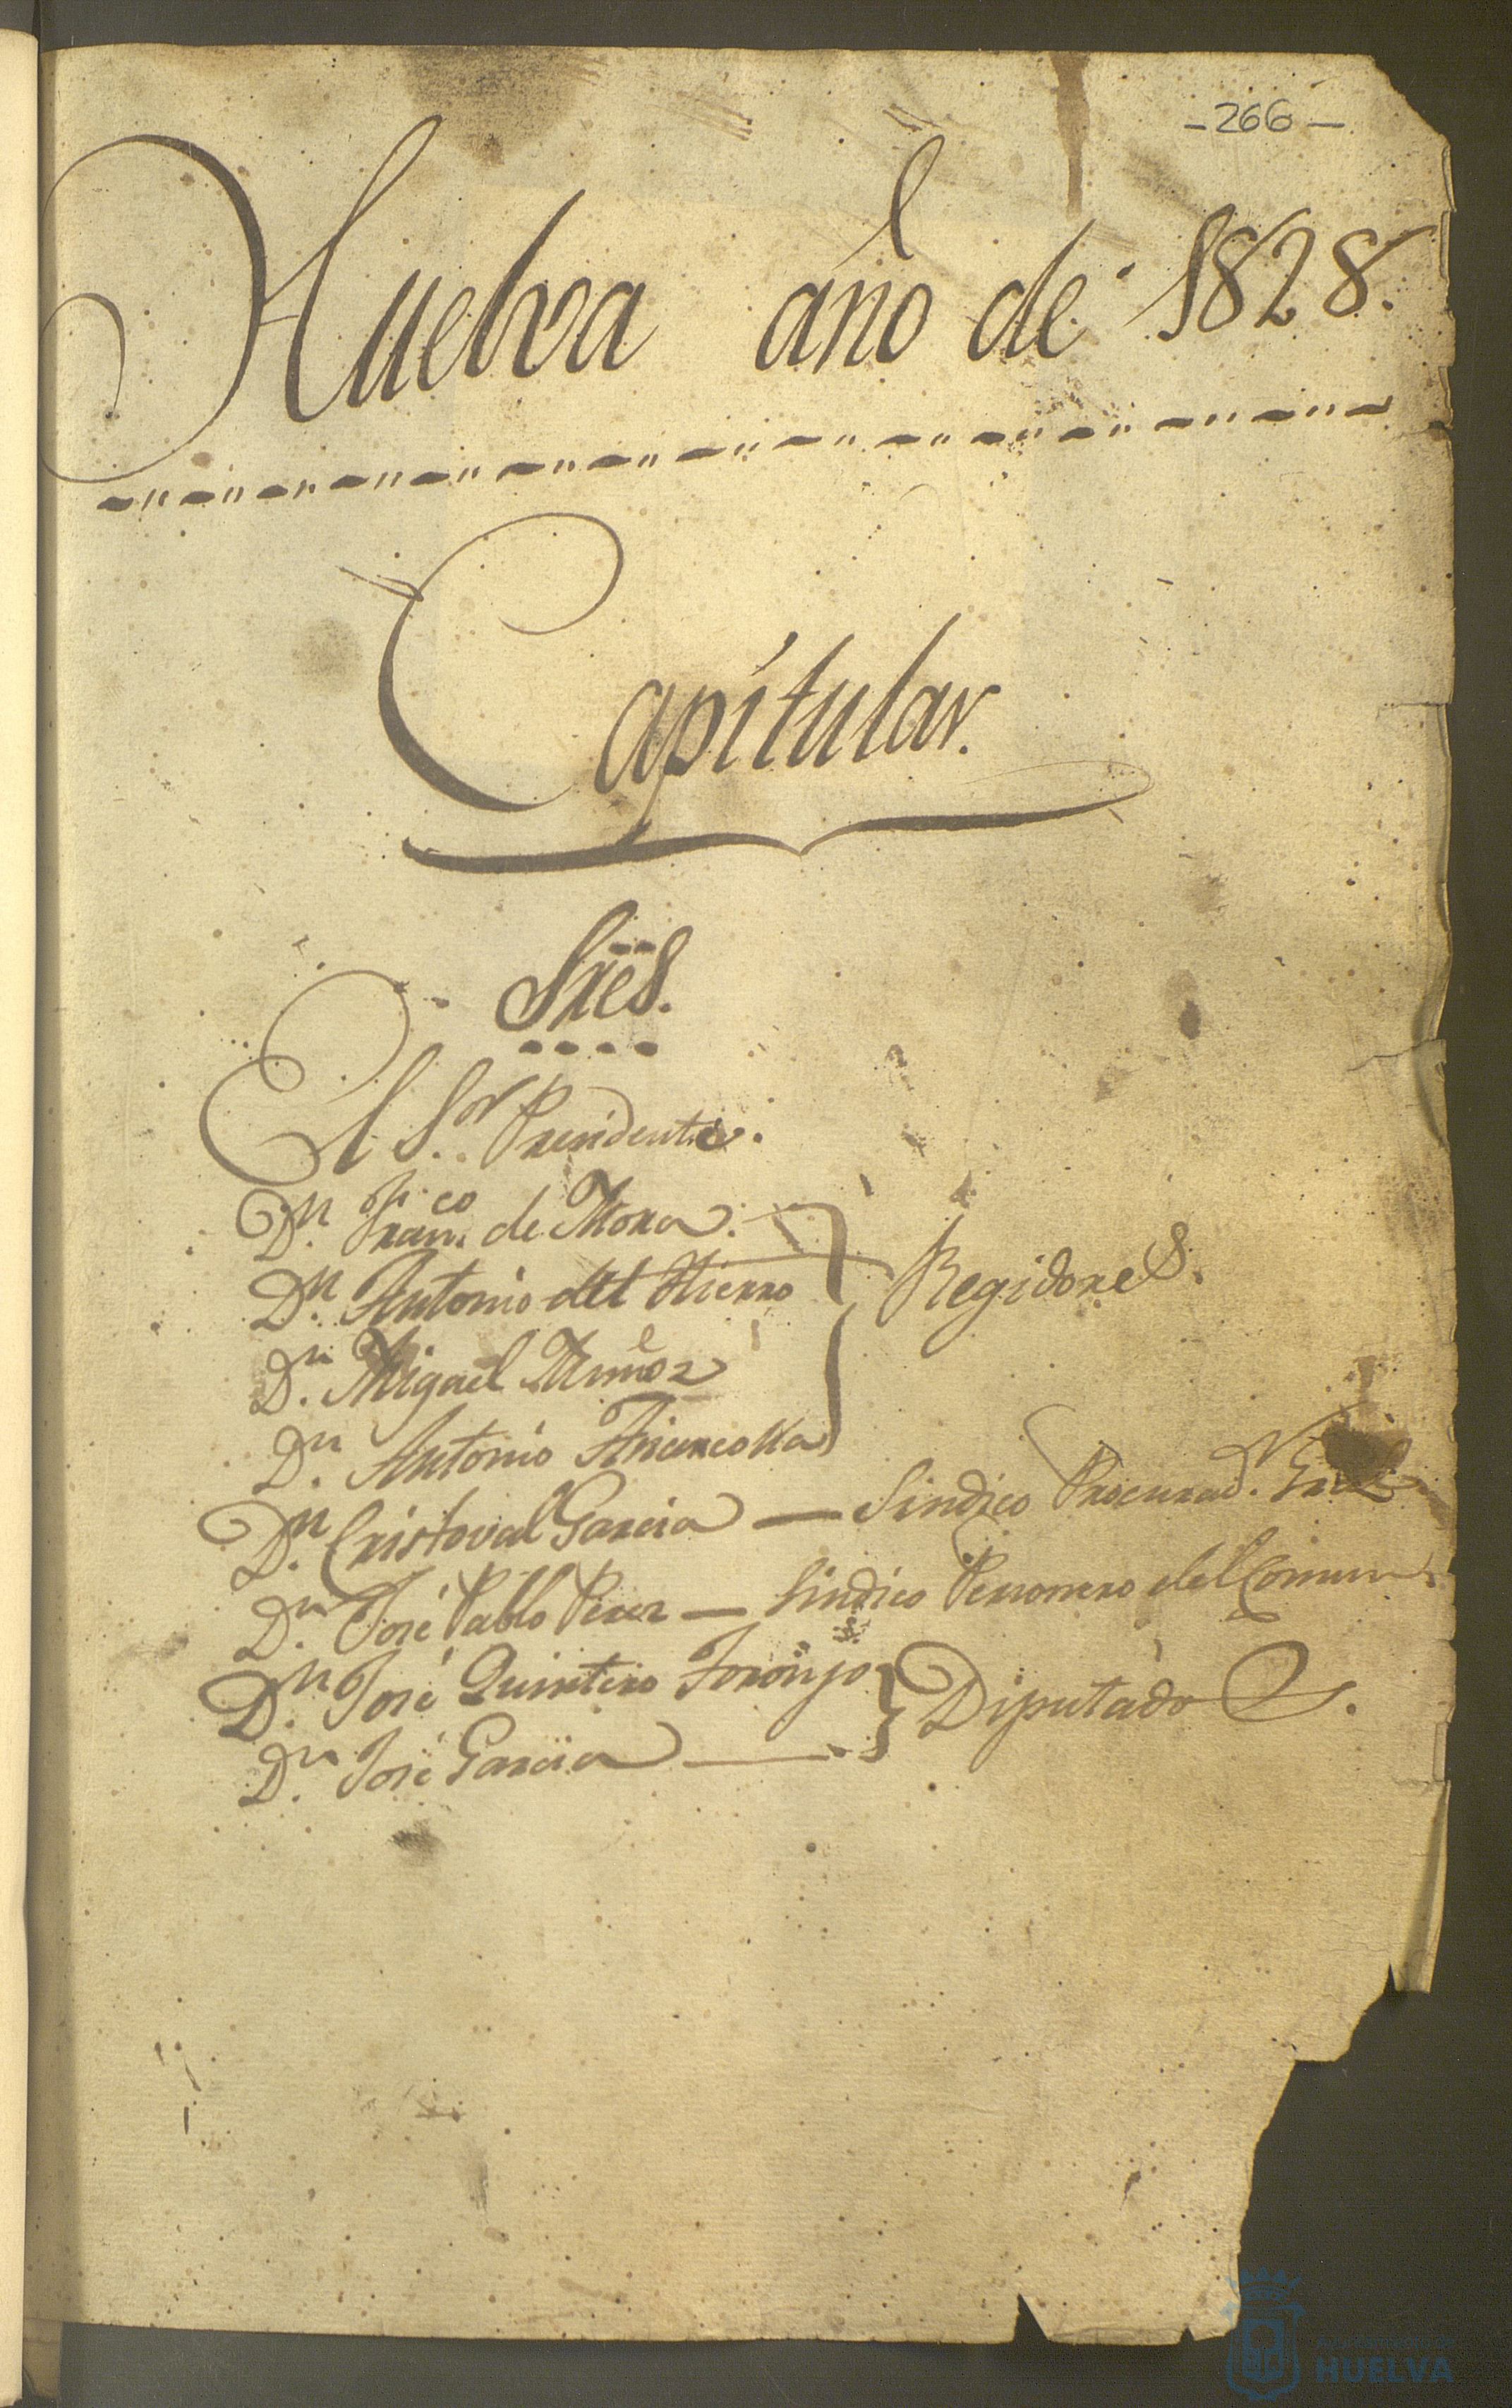 -266-
Huelva año de 1828.
Capitular.
Sres.
El Sor. Presidente.
Dn. Franco. de Mora.
Dn. Antonio del Hierro
Regidores.
Dn. Miguel Muñoz
Dn. Antonio
Dn. Cristoval Garcia — Sindico Procurador. Gral
Dn. José Pablo Perez — Sindico Personero del Comun.
Dn. José Quintero Toronjo
Diputados.
Dn. José Garcia
HUELVA